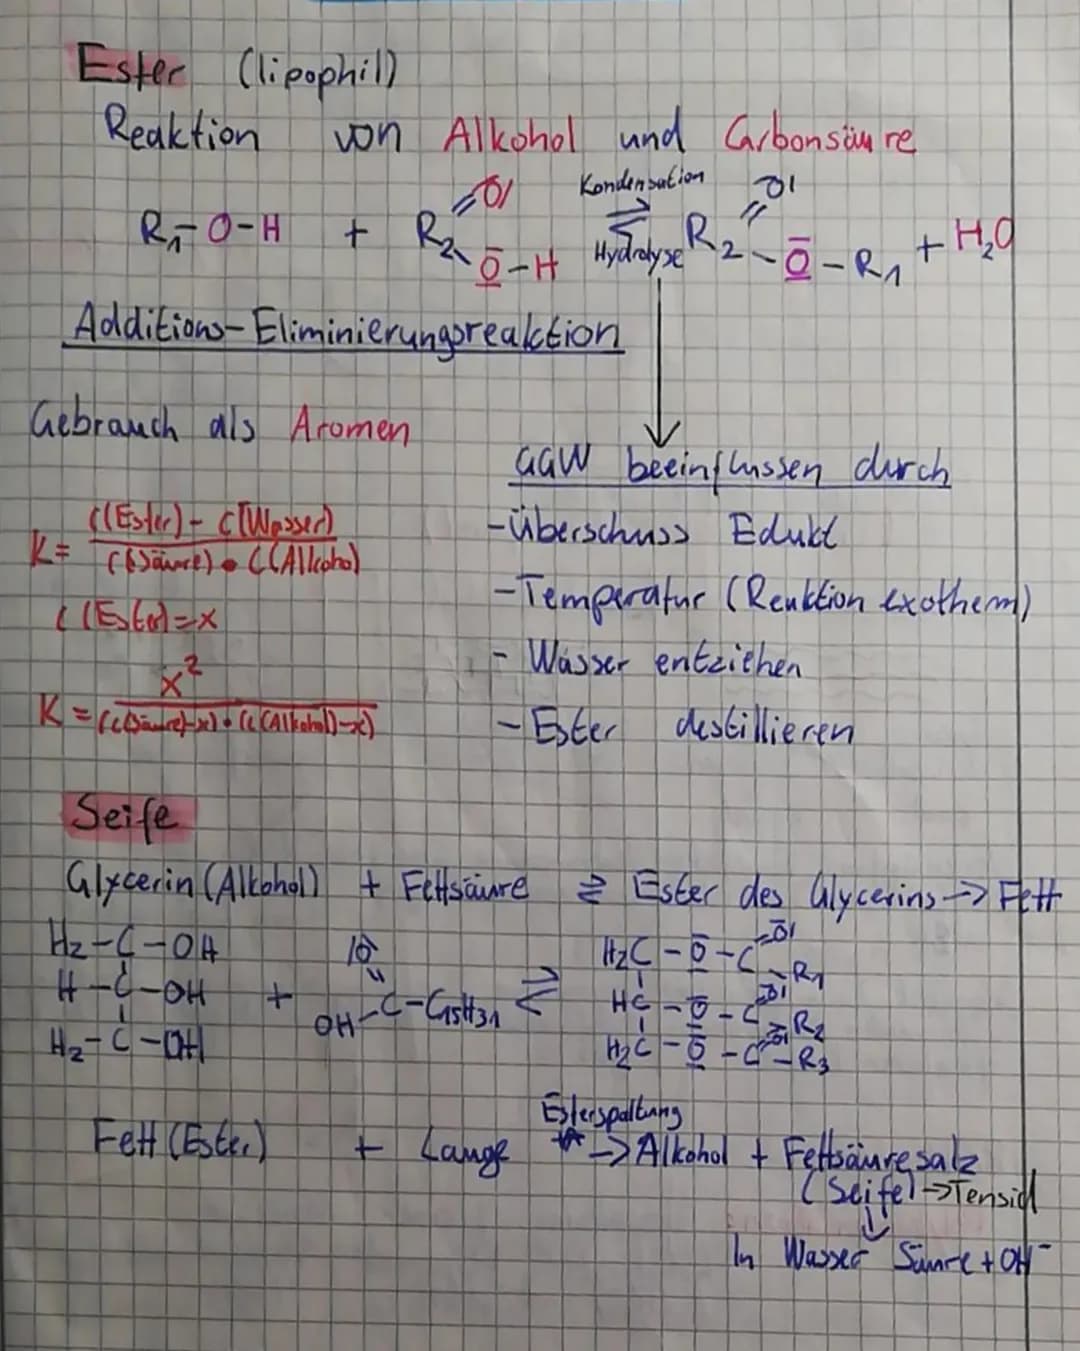 Ester (lipophil)
Reaktion von Alkohol und Carbonsäure
R₁-O-H + R₂ =O| -O-H Kondensation ⇌ Hydrolyse R₂ =O| -O-R₁ + H₂O
Additions-Eliminierungsreaktion
Gebrauch als Aromen
GGW beeinflussen durch
-Überschuss Edukt
-Temperatur (Reaktion exotherm)
- Wasser entziehen
- Ester destillieren
K = c(Ester) - c(Wasser) / c(Säure) • c(Alkohol)
c(Ester)=x
K = x² / (c(Säure)-x) • (c(Alkohol)-x)
Seife
Glycerin (Alkohol) + Fettsäure ⇌ Ester des Glycerins → Fett
H₂-C-OH
H-C-OH + OH-C-C₁₅H₃₁ ⇌
|O
H₂-C-OH
H₂C-O-C =O| -R₁
HC-O-C =O| -R₂
H₂C-O-C =O| -R₃
Esterspaltung
Fett (Ester) + Lauge → Alkohol + Fettsäuresalz
(Seife) → Tensid
↓
In Wasser Säure + OH⁻